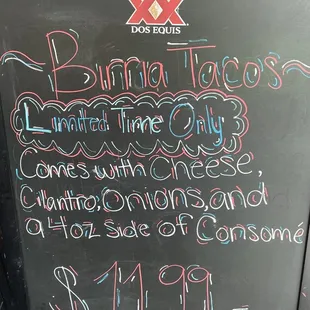 XX
DOS EQUIS
~Birria Tacos~
Limited Time Only
Comes with cheese,
Cilantro, onions, and
a 4oz side of Consomé
$11.99